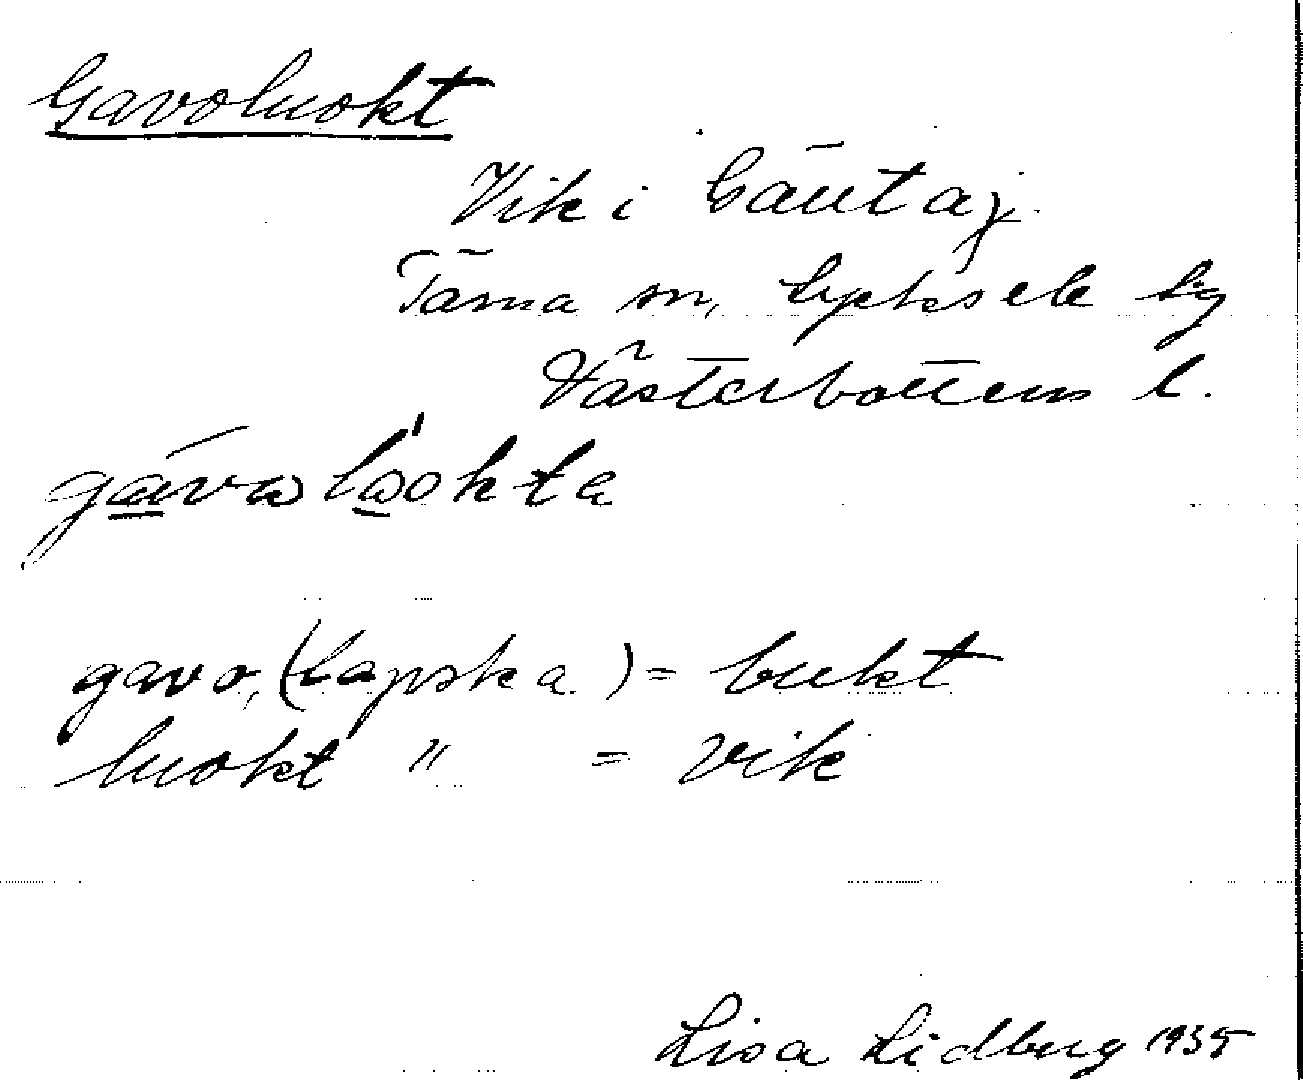 Gavoluokt
Vik i Gäutaj.
Tärna sn, Lycksele lg
Västerbottens l.
gavo, (lapska) = bukt
luokt " = vik
Lisa Lidberg 1935